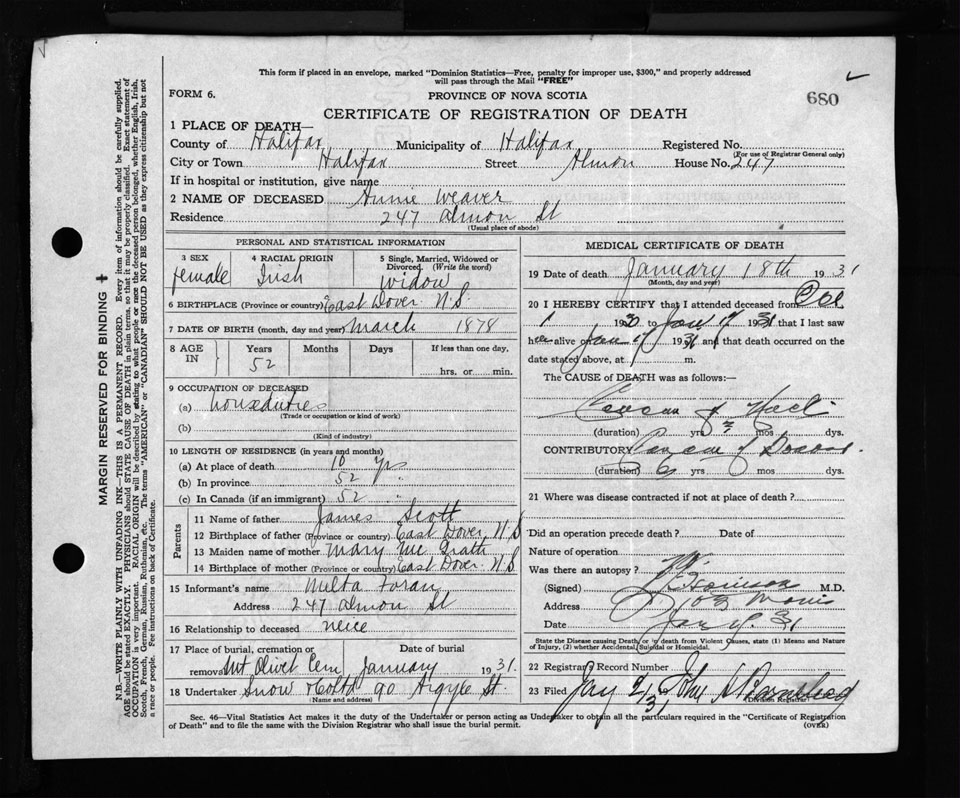 This form if placed in an envelope, marked "Dominion Statistics—Free, penalty for improper use, $300," and properly addressed
will pass through the Mail "FREE"
FORM 6. PROVINCE OF NOVA SCOTIA 680
CERTIFICATE OF REGISTRATION OF DEATH
1 PLACE OF DEATH—
County of Halifax Municipality of Halifax Registered No.
(For use of Registrar General only)
City or Town Halifax Street Almon House No. 247
If in hospital or institution, give name
2 NAME OF DECEASED Annie Weaver
Residence 247 Almon St
(Usual place of abode)
PERSONAL AND STATISTICAL INFORMATION
3 SEX 4 RACIAL ORIGIN 5 Single, Married, Widowed or
Divorced. (Write the word)
female Irish widow
6 BIRTHPLACE (Province or country) East Dover N.S.
7 DATE OF BIRTH (month, day and year) March 1878
8 AGE IN Years Months Days If less than one day,
52 hrs. or min.
9 OCCUPATION OF DECEASED
(a) houseduties
(Trade or occupation or kind of work)
(b)
(Kind of industry)
10 LENGTH OF RESIDENCE (in years and months)
(a) At place of death 10 yrs
(b) In province 52 "
(c) In Canada (if an immigrant) 52 "
Parents
11 Name of father James Scott
12 Birthplace of father (Province or country) East Dover N.S
13 Maiden name of mother Mary Mc Grath
14 Birthplace of mother (Province or country) East Dover N.S
15 Informant's name Foran
Address 247 Almon St
16 Relationship to deceased neice
17 Place of burial, cremation or Date of burial
removal Mt Olivet Cem January 1931.
18 Undertaker Snow & Co Ltd 90 Argyle St.
(Name and address)
MEDICAL CERTIFICATE OF DEATH
19 Date of death January 18th 1931
(Month, day and year)
20 I HEREBY CERTIFY that I attended deceased from Oct
1 1930 to Jan 17 1931 that I last saw
her alive Jan 17 1931 and that death occurred on the
date stated above, at m.
The CAUSE of DEATH was as follows:—
Cancer of
(duration) yrs mos dys.
CONTRIBUTORY Cancer of
(duration) 6 yrs mos dys.
21 Where was disease contracted if not at place of death?
Did an operation precede death? Date of
Nature of operation
Was there an autopsy? No.
(Signed) M.D.
Address Morris
Date Jan 31
State the Disease causing Death, or in death from Violent Causes, state (1) Means and Nature
of Injury, (2) whether Accidental, Suicidal or Homicidal.
22 Registrar's Record Number
23 Filed John
(Division Registrar)
Sec. 46—Vital Statistics Act makes it the duty of the Undertaker or person acting as Undertaker to obtain all the particulars required in the "Certificate of Registration
of Death" and to file the same with the Division Registrar who shall issue the burial permit. (OVER)
MARGIN RESERVED FOR BINDING
N.B.—WRITE PLAINLY WITH UNFADING INK—THIS IS A PERMANENT RECORD. Every item of information should be carefully supplied.
AGE should be stated EXACTLY. PHYSICIANS should STATE CAUSE OF DEATH in plain terms, so that it may be properly classified. Exact statement of
OCCUPATION is very important. RACIAL ORIGIN will be described by stating to what people or race the deceased person belonged, whether English, Irish,
Scotch, French, German, Russian, Ruthenian, etc. The terms "AMERICAN" or "CANADIAN" SHOULD NOT BE USED as they express citizenship but not
a race or people. See instructions on back of Certificate.